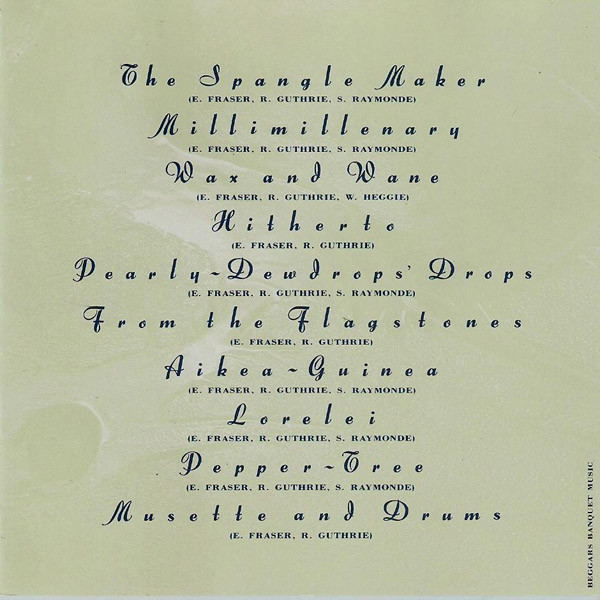 The Spangle Maker
(E. FRASER, R. GUTHRIE, S. RAYMONDE)
Millimillenary
(E. FRASER, R. GUTHRIE, S. RAYMONDE)
Wax and Wane
(E. FRASER, R. GUTHRIE, W. HEGGIE)
Hitherto
(E. FRASER, R. GUTHRIE)
Pearly~Dewdrops' Drops
(E. FRASER, R. GUTHRIE, S. RAYMONDE)
From the Flagstones
(E. FRASER, R. GUTHRIE)
Aikea~Guinea
(E. FRASER, R. GUTHRIE, S. RAYMONDE)
Lorelei
(E. FRASER, R. GUTHRIE, S. RAYMONDE)
Pepper~Tree
(E. FRASER, R. GUTHRIE, S. RAYMONDE)
Musette and Drums
(E. FRASER, R. GUTHRIE)
BEGGARS BANQUET MUSIC